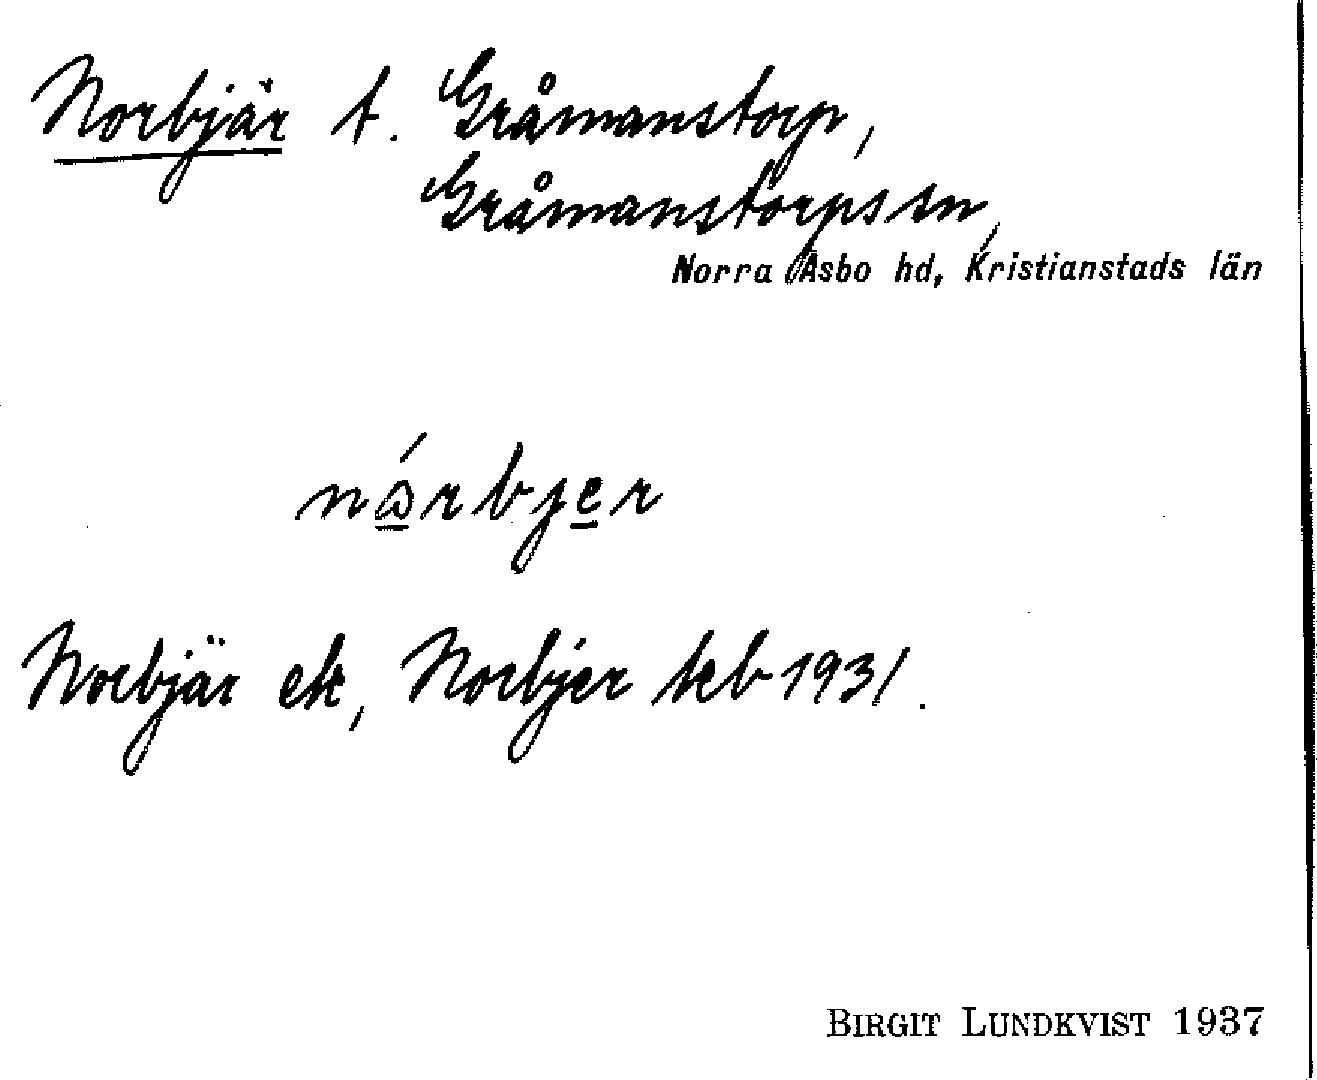 Norbjär t. Gråmanstorp,
Gråmanstorps sn,
Norra Åsbo hd, Kristianstads län
nɷ́rbjer
Norbjär ek, Norbjer tcb 1931.
BIRGIT LUNDKVIST 1937